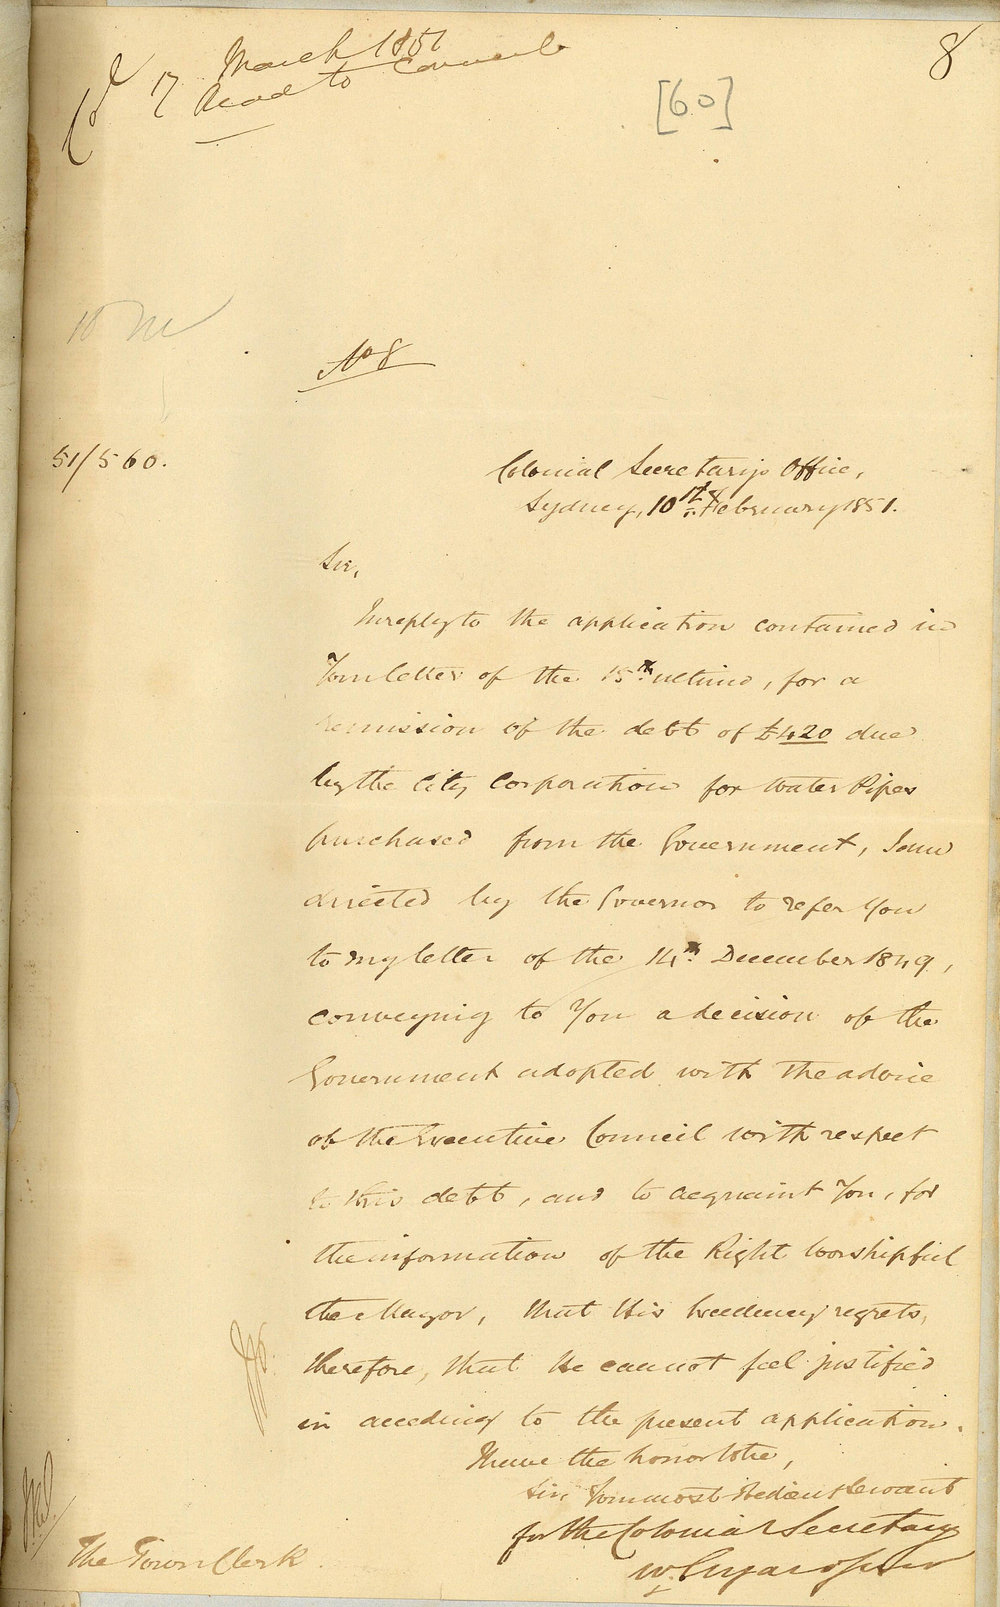 17 March 1851
Read to Council
8
[60]
No 8
51/560.
Colonial Secretary's Office,
Sydney, 10th February 1851.
Sir,
In reply to the application contained in
Your letter of the 15th ultimo, for a
remission of the debt of £420 due
by the City Corporation for Water Pipes
purchased from the Government, I am
directed by the Governor to refer You
to my letter of the 14th December 1849,
conveying to You a decision of the
Government adopted with the advice
of the Executive Council with respect
to this debt, and to acquaint You, for
the information of the Right Worshipful
the Mayor, that His Excellency regrets,
therefore, that He cannot feel justified
in acceding to the present application.
I have the honor to be,
Sir, Your most obedient Servant
for the Colonial Secretary
W. Elyard Junr
The Town Clerk